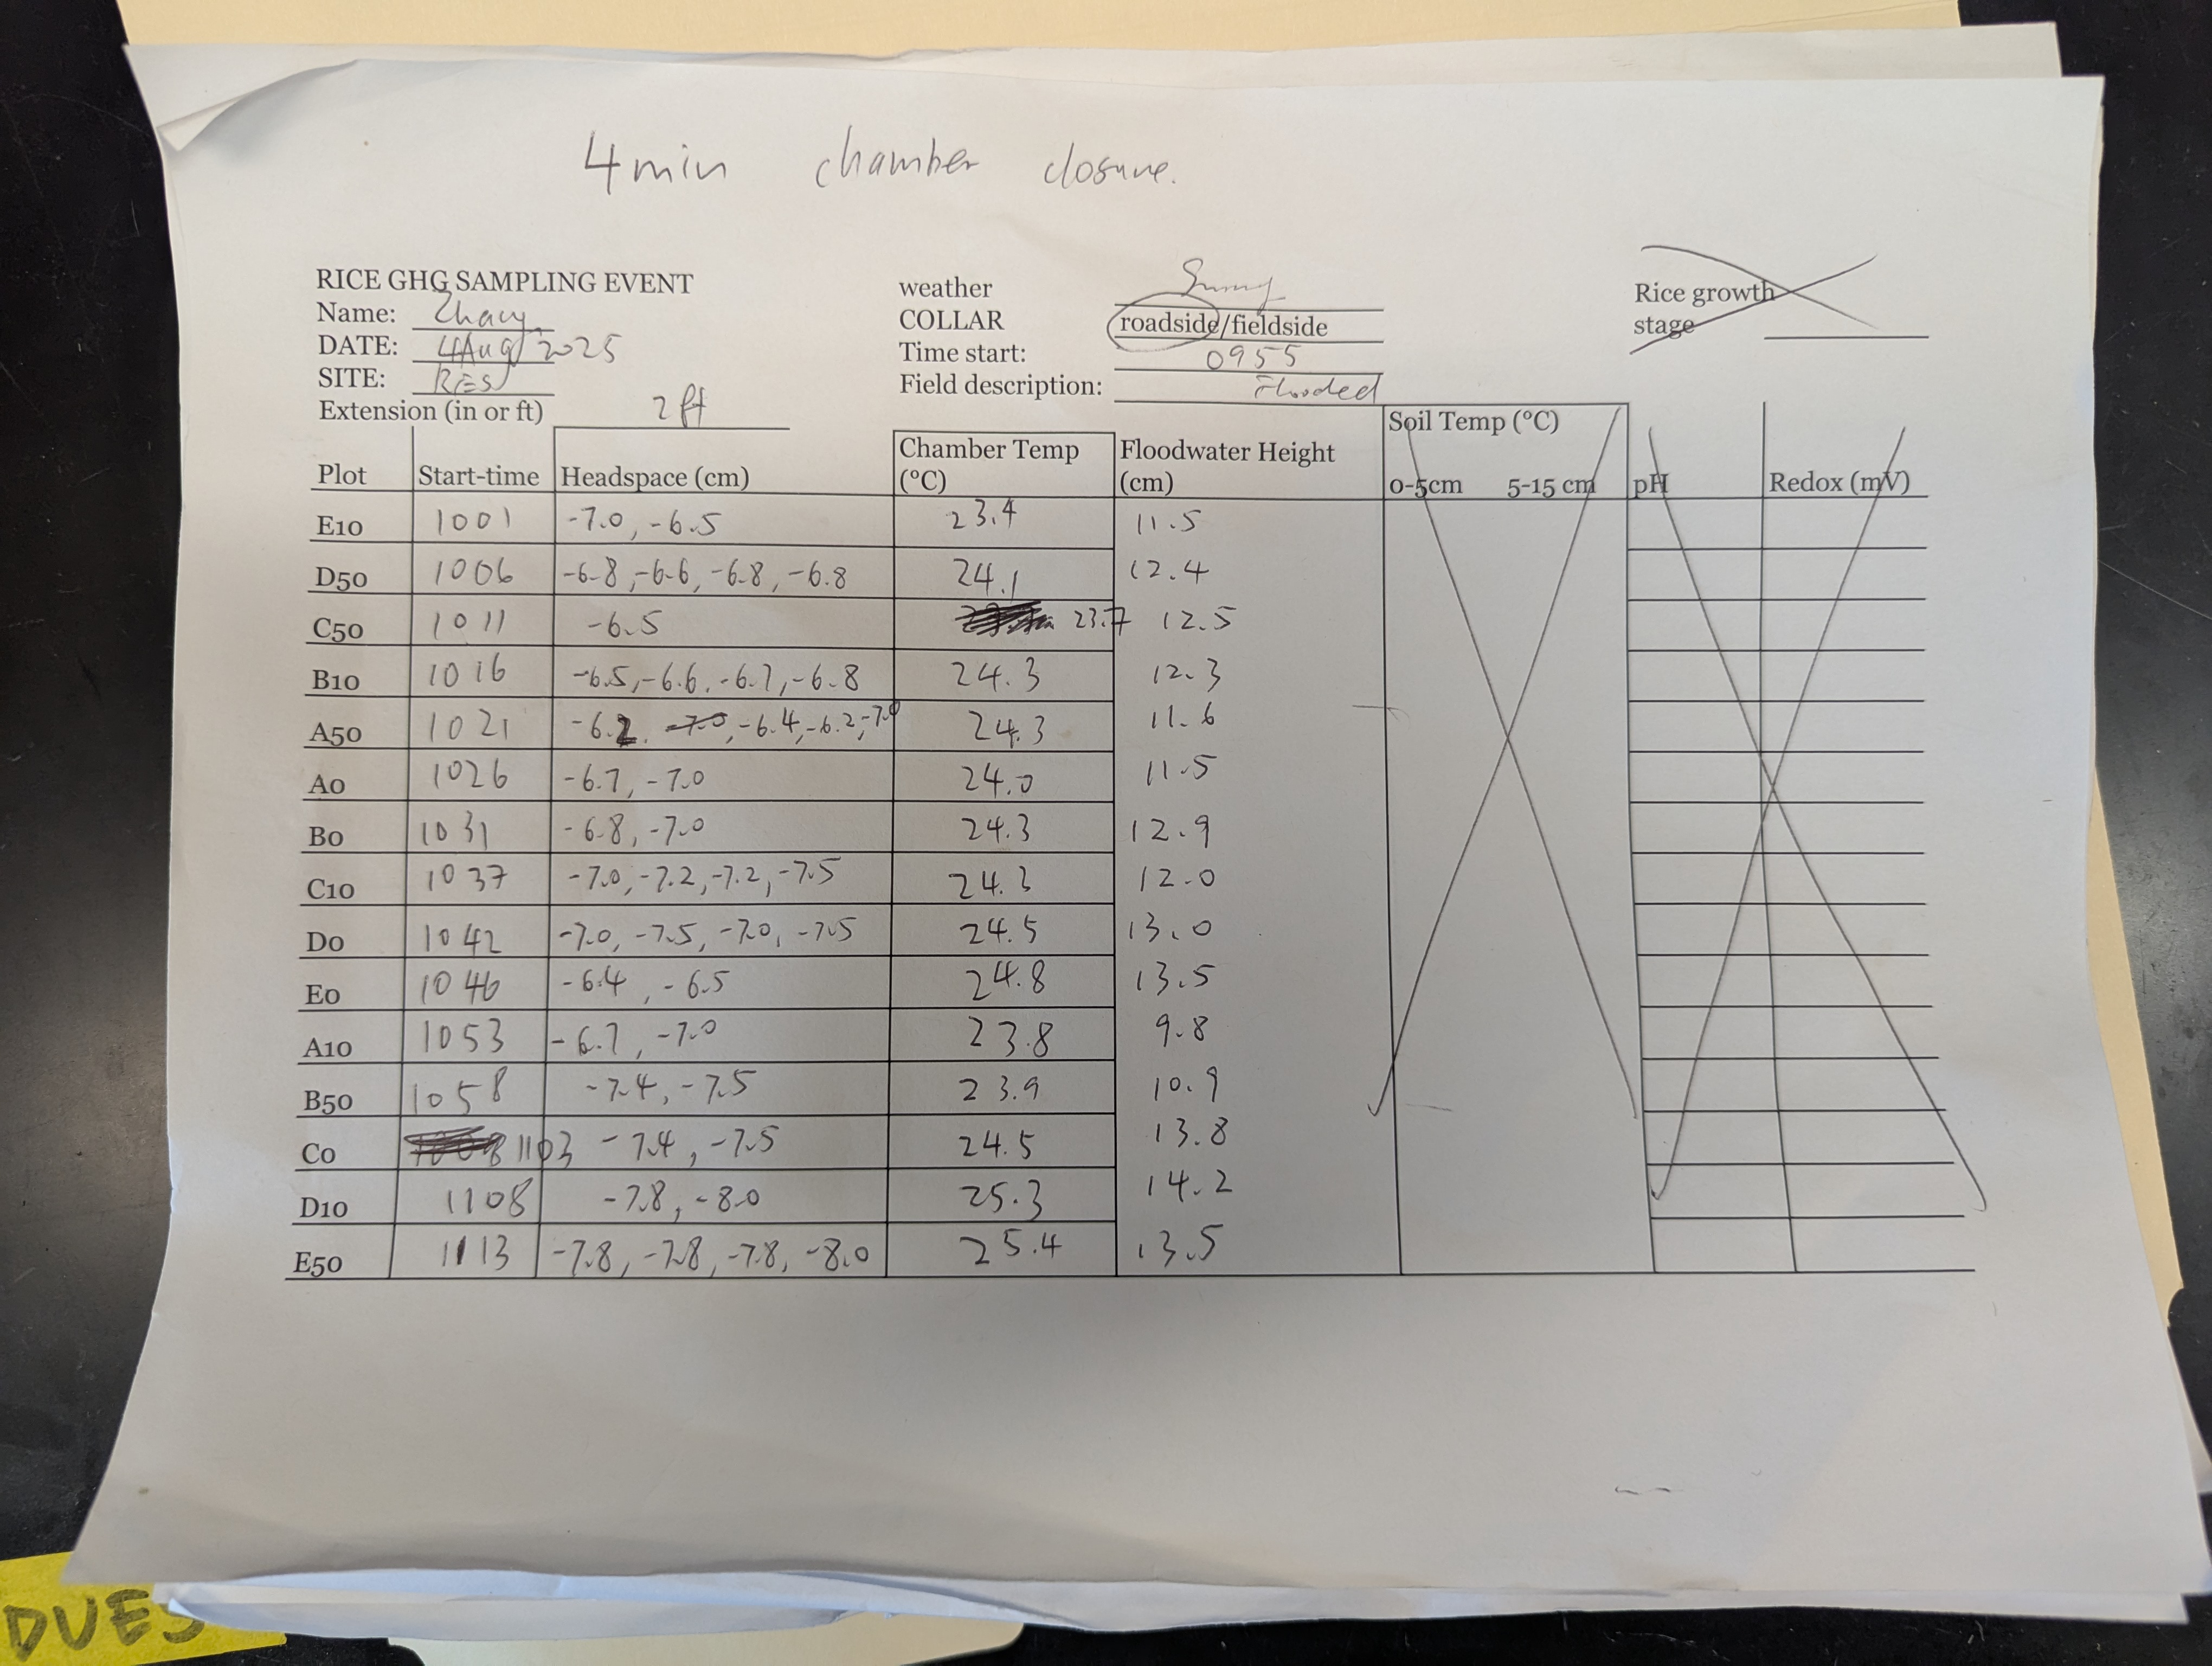 4min chamber closure.
RICE GHG SAMPLING EVENT
Name: Zhang
DATE: 4Aug 2025
SITE: RES
Extension (in or ft) 2 ft
weather Sunny
COLLAR roadside/fieldside
Time start: 0955
Field description: Flooded
Rice growth
stage
Soil Temp (°C)
Plot Start-time Headspace (cm) Chamber Temp (°C) Floodwater Height (cm) 0-5cm 5-15 cm pH Redox (mV)
E10 1001 -7.0, -6.5 23.4 11.5
D50 1006 -6.8, -6.6, -6.8, -6.8 24.1 12.4
C50 1011 -6.5 23.7 12.5
B10 1016 -6.5, -6.6, -6.7, -6.8 24.3 12.3
A50 1021 -6.2, -7.0, -6.4, -6.2, -7.0 24.3 11.6
A0 1026 -6.7, -7.0 24.0 11.5
B0 1031 -6.8, -7.0 24.3 12.9
C10 1037 -7.0, -7.2, -7.2, -7.5 24.3 12.0
D0 1042 -7.0, -7.5, -7.0, -7.5 24.5 13.0
E0 1046 -6.4, -6.5 24.8 13.5
A10 1053 -6.7, -7.0 23.8 9.8
B50 1058 -7.4, -7.5 23.9 10.9
C0 1103 -7.4, -7.5 24.5 13.8
D10 1108 -7.8, -8.0 25.3 14.2
E50 1113 -7.8, -7.8, -7.8, -8.0 25.4 13.5
DUES